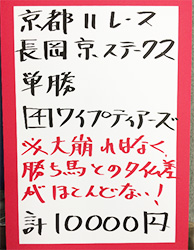 京都11レース
長岡京ステークス
単勝
4ワイプティアーズ
※大崩れはなく、
勝ち馬とのタイム差
がほとんどない!
計10000円